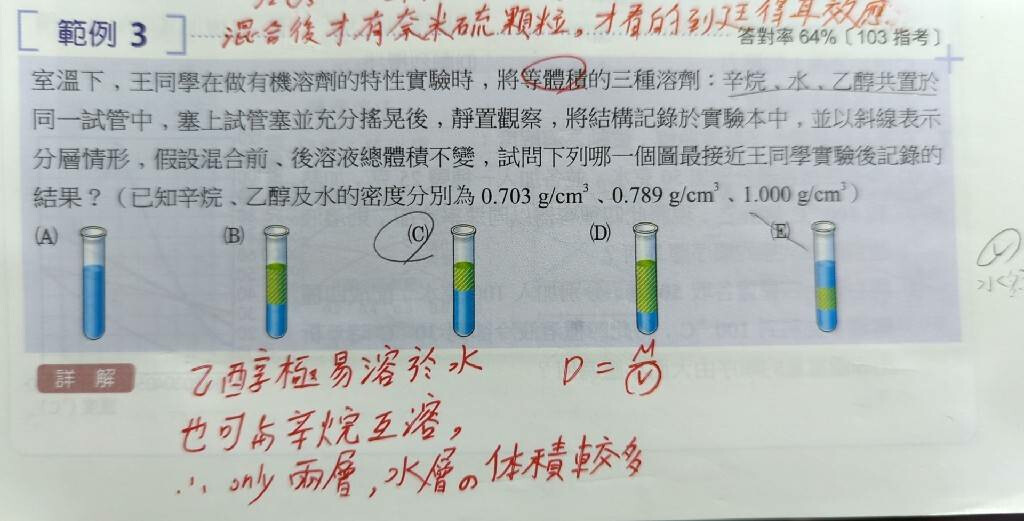 混合後才有奈米硫顆粒。才看的到廷得耳效應
範例 3
答對率 64%〔103 指考〕
室溫下，王同學在做有機溶劑的特性實驗時，將等體積的三種溶劑：辛烷、水、乙醇共置於
同一試管中，塞上試管塞並充分搖晃後，靜置觀察，將結構記錄於實驗本中，並以斜線表示
分層情形，假設混合前、後溶液總體積不變，試問下列哪一個圖最接近王同學實驗後記錄的
結果？（已知辛烷、乙醇及水的密度分別為 0.703 g/cm³、0.789 g/cm³、1.000 g/cm³）
(A) (B) (C) (D) (E)
詳解
乙醇極易溶於水 D = M/V
也可与辛烷互溶，
∴ only 兩層，水層の体積較多